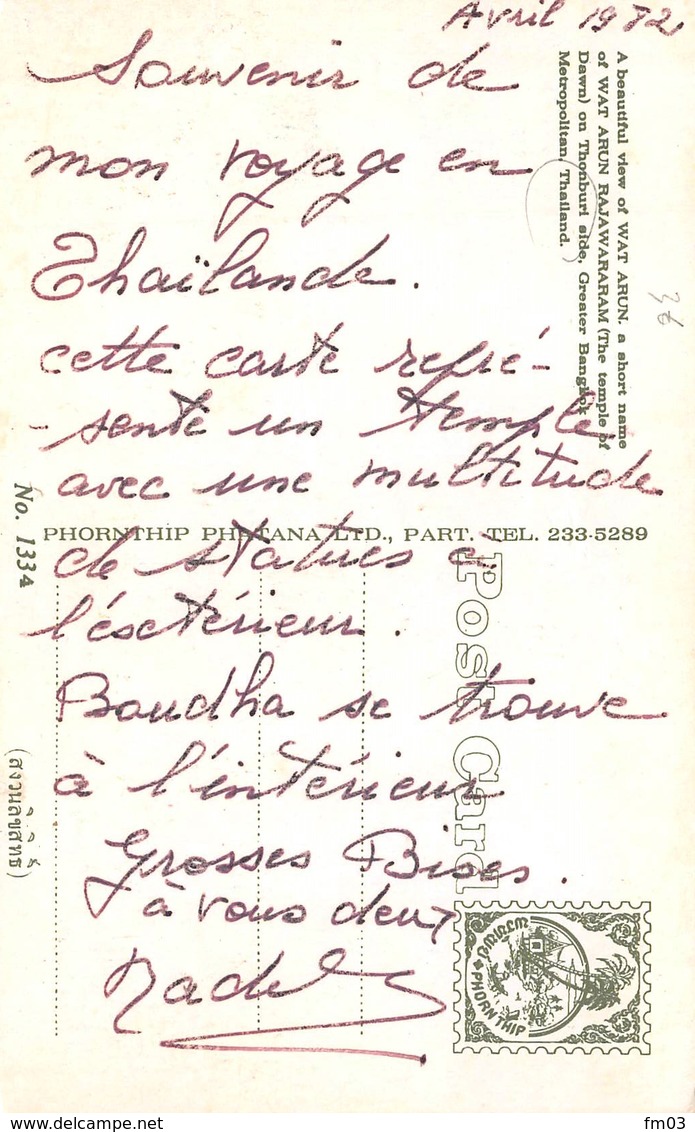 Avril 1972
Souvenir de
mon voyage en
Thaïlande.
cette carte repré-
sente un temple
avec une multitude
de statues à
l'éxtérieur.
Boudha se trouve
à l'intérieur
Grosses Bises.
à vous deux
A beautiful view of WAT ARUN. a short name
of WAT ARUN RAJAWARARAM (The temple of
Dawn) on Thonburi side, Greater Bangkok
Metropolitan Thailand.
No. 1334
PHORNTHIP PHATANA LTD., PART. TEL. 233-5289
Post Card
(สงวนลิขสิทธิ์)
พรทิพย์
PHORNTHIP
delcampe.net
fm03